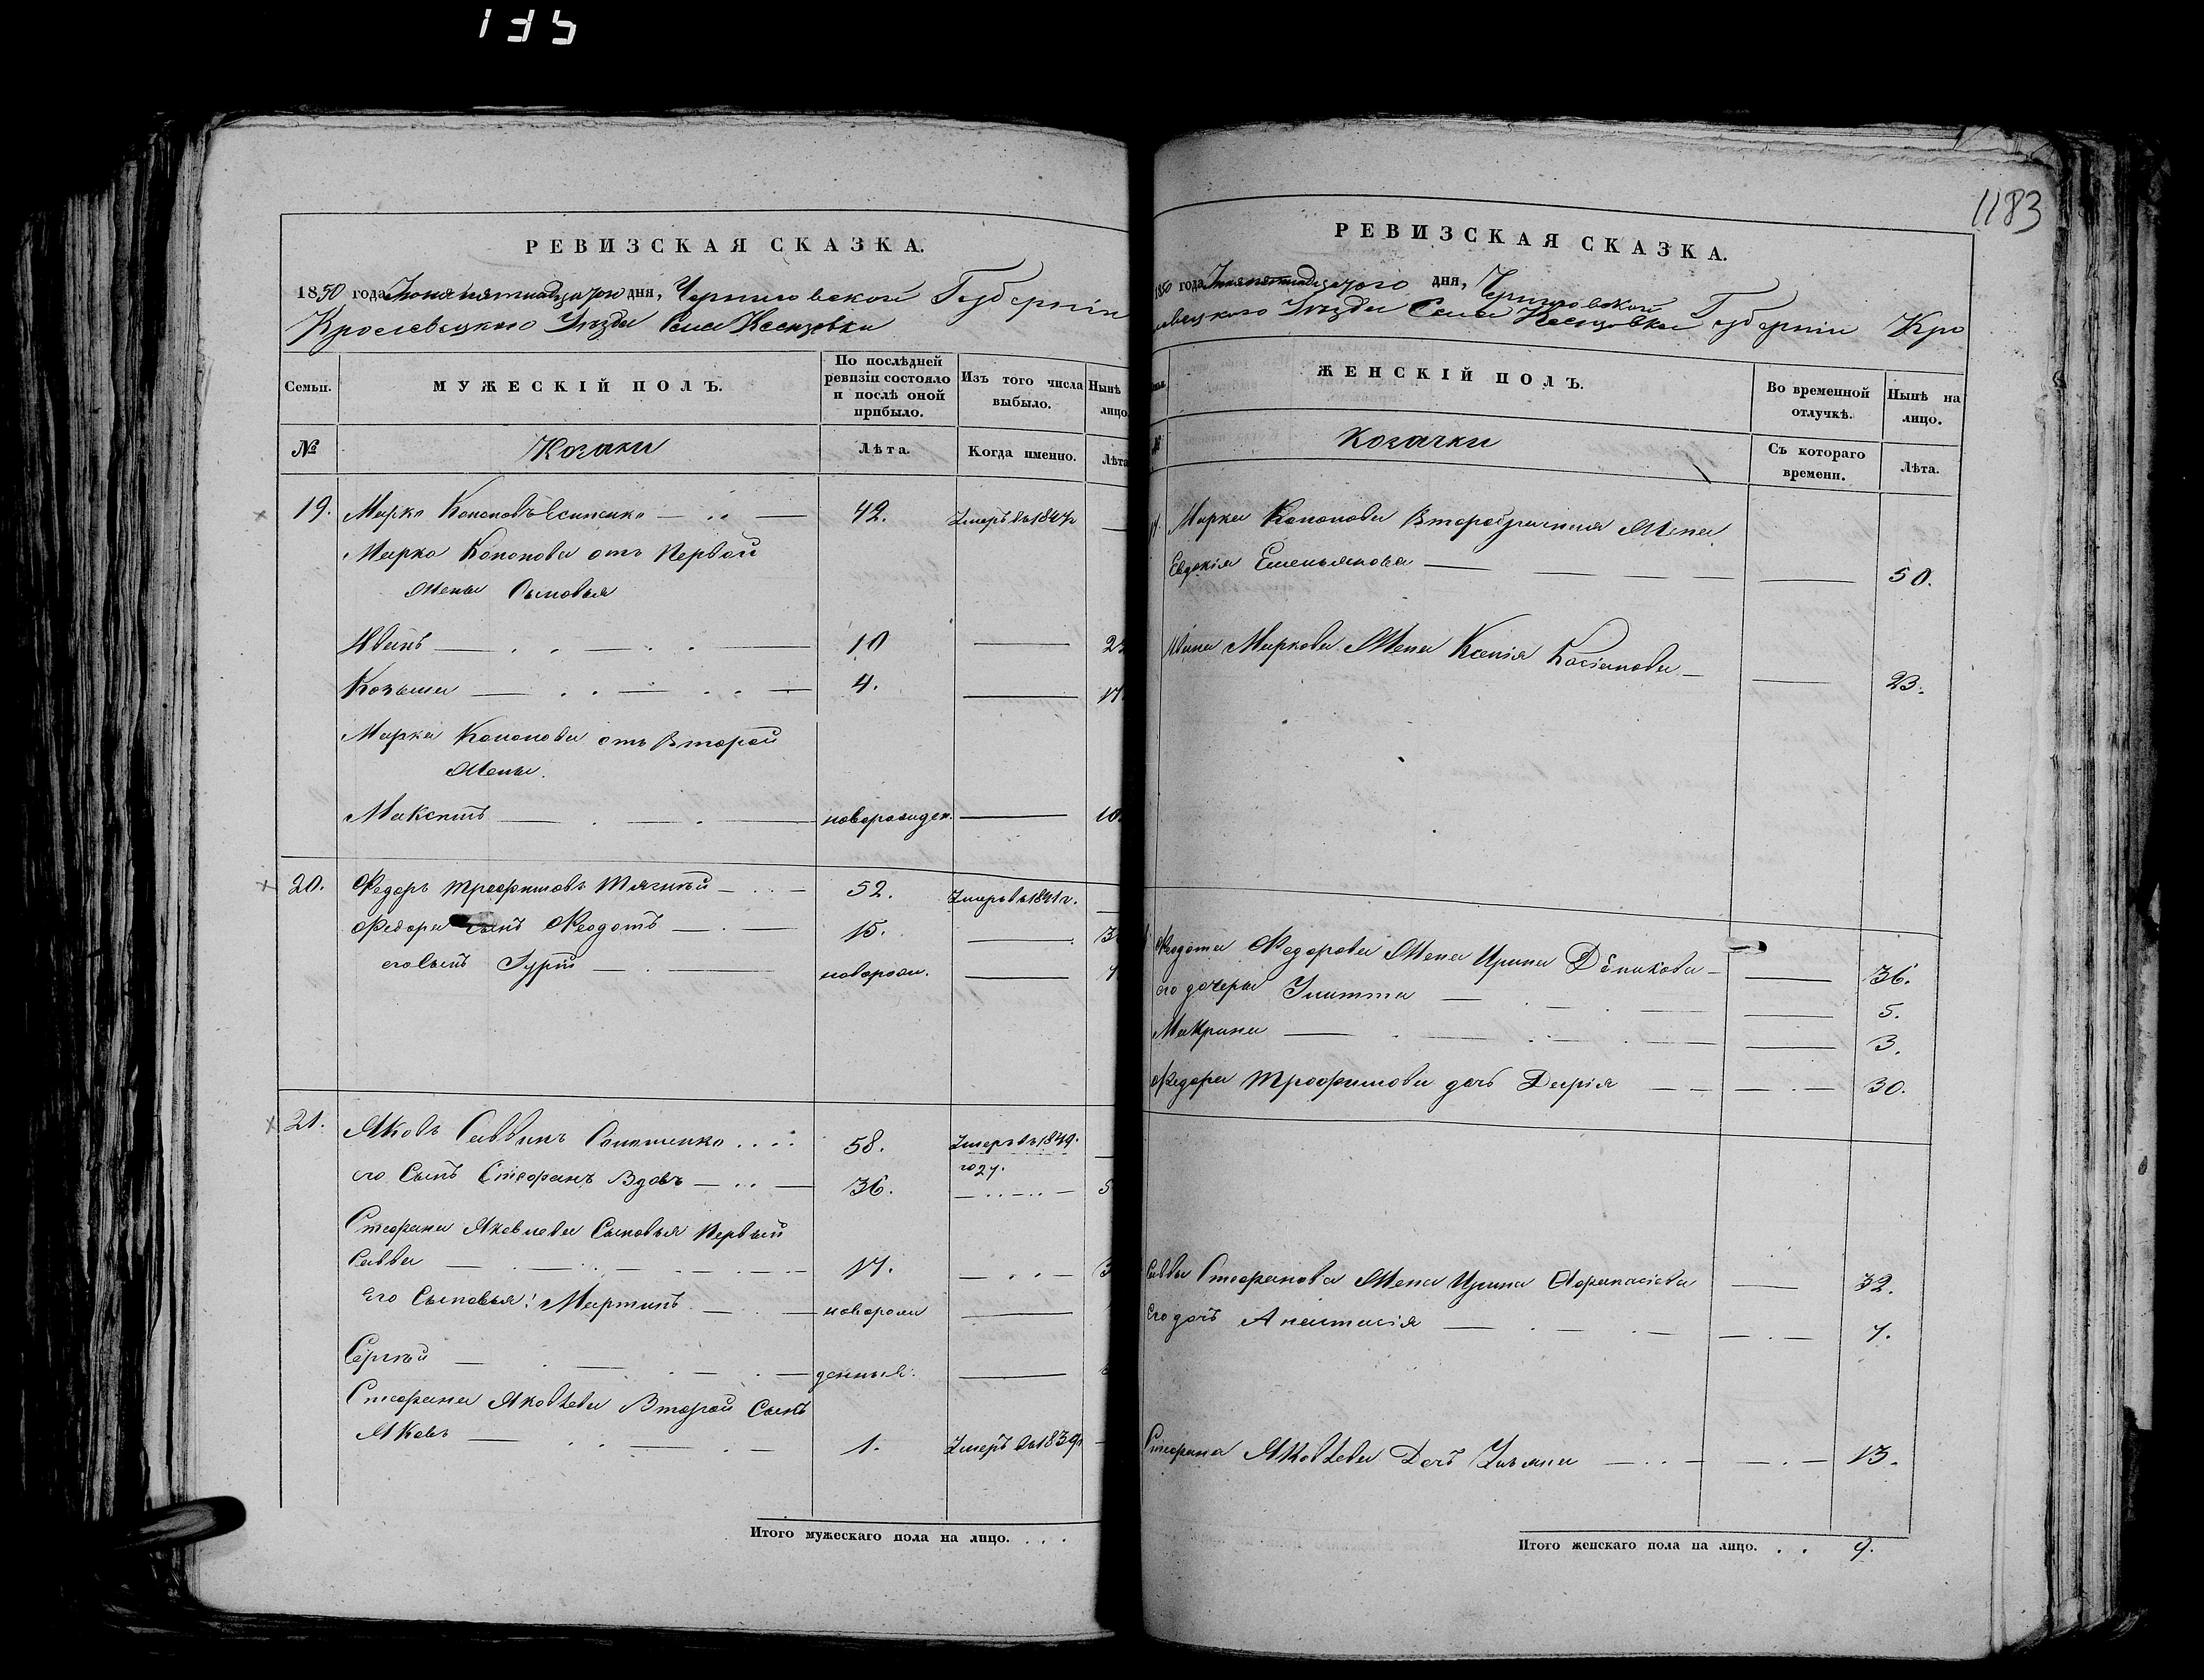 135
1183
РЕВИЗСКАЯ СКАЗКА.
1850 года Іюня пятнадцатого дня, Черниговской Губерніи
Кролевецкого Уѣзда Села
Семьи.
МУЖЕСКІЙ ПОЛЪ.
По послѣдней ревизіи состояло и послѣ оной прибыло.
Изъ того числа выбыло.
Нынѣ лицо
№
Козаки
Лѣта.
Когда именно.
Лѣта
19. Марко Кононовъ 42. Умеръ въ 1847
Марко Кононова отъ Первой
Жены Сыновья
Иванъ 10
Козьма 4. 17
Марка Кононова отъ Второй
Жены.
Максимъ новорожден. 10
20. Федоръ Трофимовъ 52. Умеръ въ 1841 г.
Федора Сынъ Федотъ 15. 3
его Сынъ Гурій новорож.
21. Яковъ Саввинъ 58. Умеръ въ 1849.
году.
его Сынъ Стефанъ Вдовъ 36. 5
Стефана Яковлева Сыновья Первый
Савва 17. 3
Его Сыновья: Мартинъ новорож
Сергѣй денныя.
Стефана Яковлева Второй Сынъ
Яковъ 1. Умеръ въ 1839
Итого мужескаго пола на лицо. . . .
РЕВИЗСКАЯ СКАЗКА.
1850 года Іюня пятнадцатого дня, Черниговской Губерніи Кро
левецкого Уѣзда Села
ЖЕНСКІЙ ПОЛЪ.
Во временной отлучкѣ.
Нынѣ на лицо.
№
Козачки
Съ котораго времени.
Лѣта.
Марка Кононова Второбрачная Жена
Евдокія Емельянова 50.
Ивана Маркова Жена Ксенія Касіанова 23.
Федота Федорова Жена Ирина 36.
его дочери Улитта 5.
Макрина 3.
Федора Трофимова дочь Дарія 30.
Саввы Стефанова Жена Ирина Афанасіева 32.
Его дочь Анастасія 7.
Стефана Яковлева Дочь Ульяна 13.
Итого женскаго пола на лицо. . . 9.